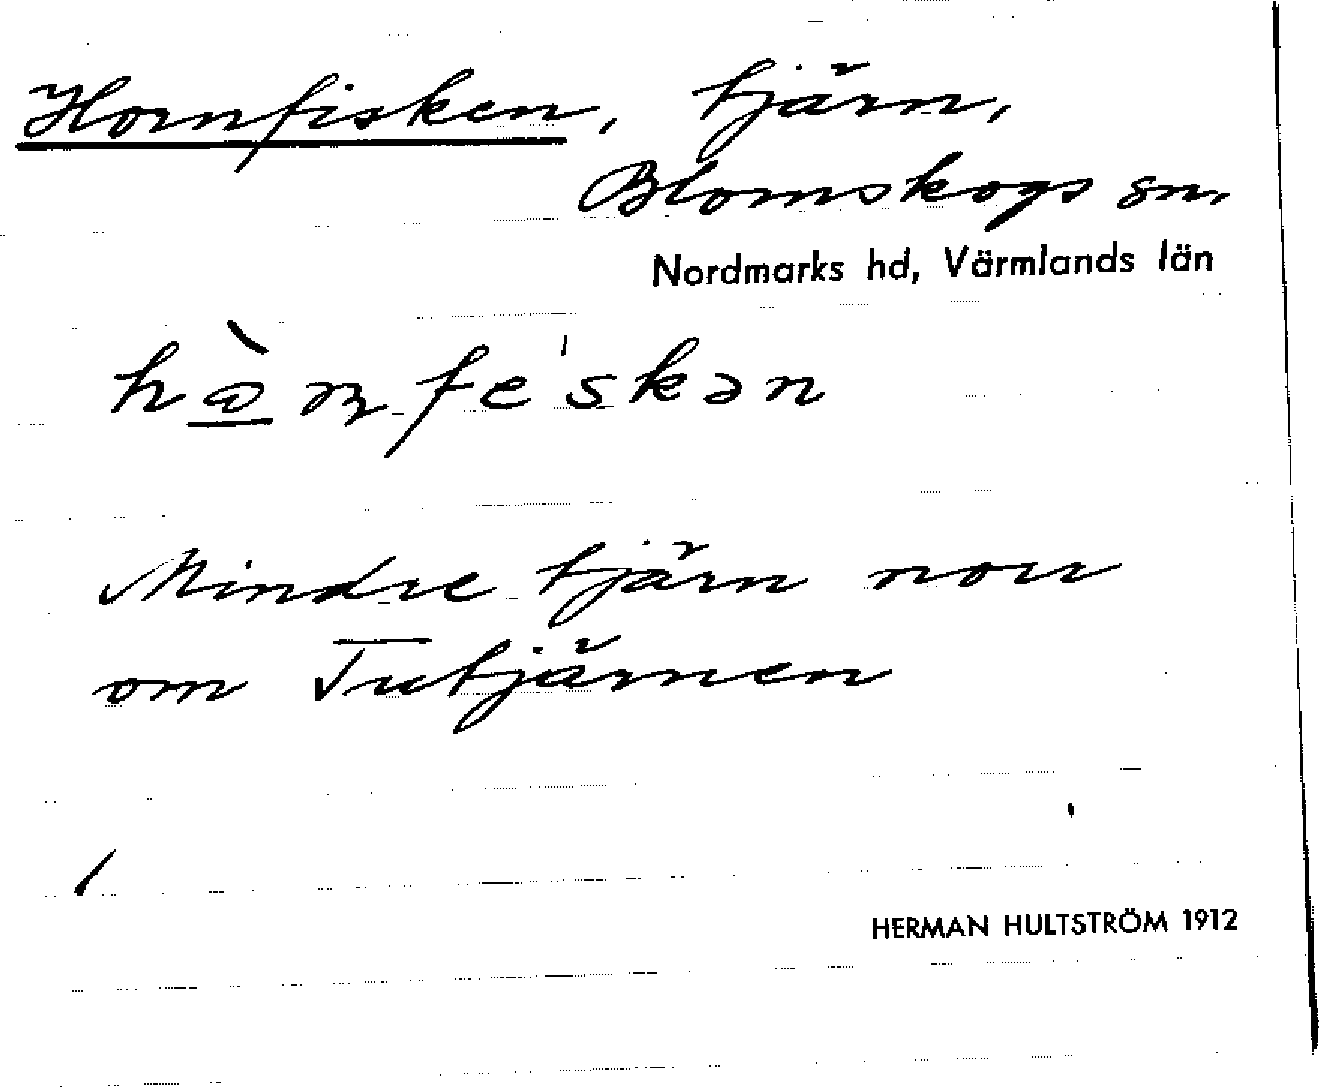 Hornfisken, tjärn,
Blomskogs sn,
Nordmarks hd, Värmlands län
Mindre tjärn norr
om Tutjärnen
HERMAN HULTSTRÖM 1912